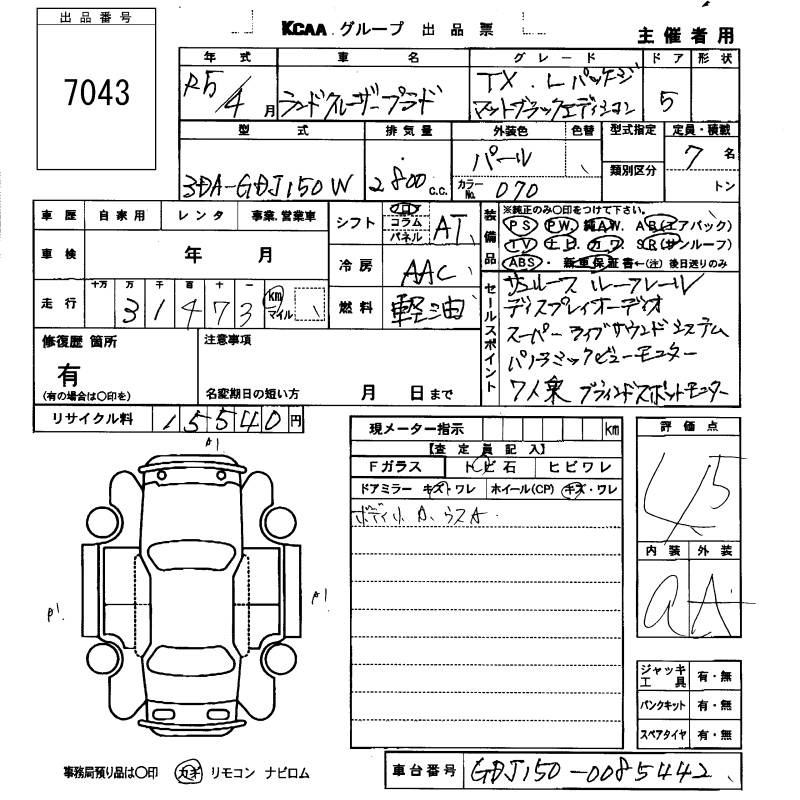 出品番号
7043
KCAA グループ 出品票
主催者用
年式 車名 グレード ドア 形状
R5/4月 ランドクルーザープラド TX.Lパッケージ
マットブラックエディション 5
型式 排気量 外装色 色替 型式指定 定員・積載
3DA-GDJ150W 2800 c.c. パール 7名
カラーNo. 070 類別区分 トン
車歴 自家用 レンタ 事業.営業車
シフト フロ コラム パネル AT
車検 年 月
冷房 AAC
走行 十万 万 千 百 十 一
31473 km マイル
燃料 軽油
装備品
※純正のみ〇印をつけて下さい。
PS PW. 純AW. AB(エアバック)
TV ナビ. カワ. SR(サンルーフ)
ABS・ 新車保証書←(注) 後日送りのみ
セールスポイント
サンルーフ ルーフレール
ディスプレイオーディオ
スーパーライブサウンドシステム
パノラミックビューモニター
7人乗 ブラインドスポットモニター
修復歴 箇所
有
(有の場合は〇印を)
注意事項
名変期日の短い方 月 日まで
リサイクル料 15540円
現メーター指示 km
【査定員記入】
Fガラス トビ石 ヒビワレ
ドアミラー キズ・ワレ ホイール(CP) キズ・ワレ
ボディリA、ウスA.
評価点
4.5
内装 外装
a A
A1
A1
A1
ジャッキ工具 有・無
パンクキット 有・無
スペアタイヤ 有・無
事務局預り品は〇印 カギ リモコン ナビロム
車台番号 GDJ150-0085442